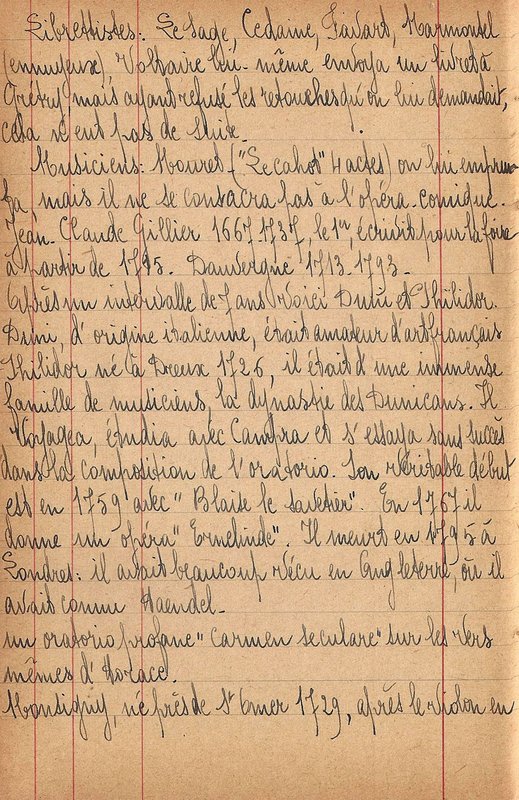 Librettistes: Le Sage, Cedaine, Favart, Marmontel
(ennuyeux), Voltaire lui-même envoya un livret à
Grétry mais ayant refusé les retouches qu'on lui demandait,
cela n'eut pas de suite.
Musiciens: Mouret ("Le cahot" 4 actes) on lui emprun-
ta, mais il ne se consacra pas à l'opéra-comique.
Jean-Claude Gillier 1667-1737, le 1er, écrivit pour la foire
à partir de 1795. Dauvergne 1713-1793.
Après un intervalle de 7 ans voici Duni et Philidor.
Duni, d'origine italienne, était amateur d'art français
Philidor né à Dreux 1726, il était d'une immense
famille de musiciens, la dynastie des Danicans. Il
voyagea, étudia avec Campra et s'essaya sans succès
dans la composition de l'oratorio. Son véritable début
est en 1759 avec "Blaise le savetier". En 1767 il
donne un opéra "Ermelinde". Il meurt en 1795 à
Londres: il avait beaucoup vécu en Angleterre, où il
avait connu Haendel.
un oratorio profane "Carmen seculare" sur les vers
mêmes d'Horace.
Monsigny, né près de St Omer 1729, après le violon en